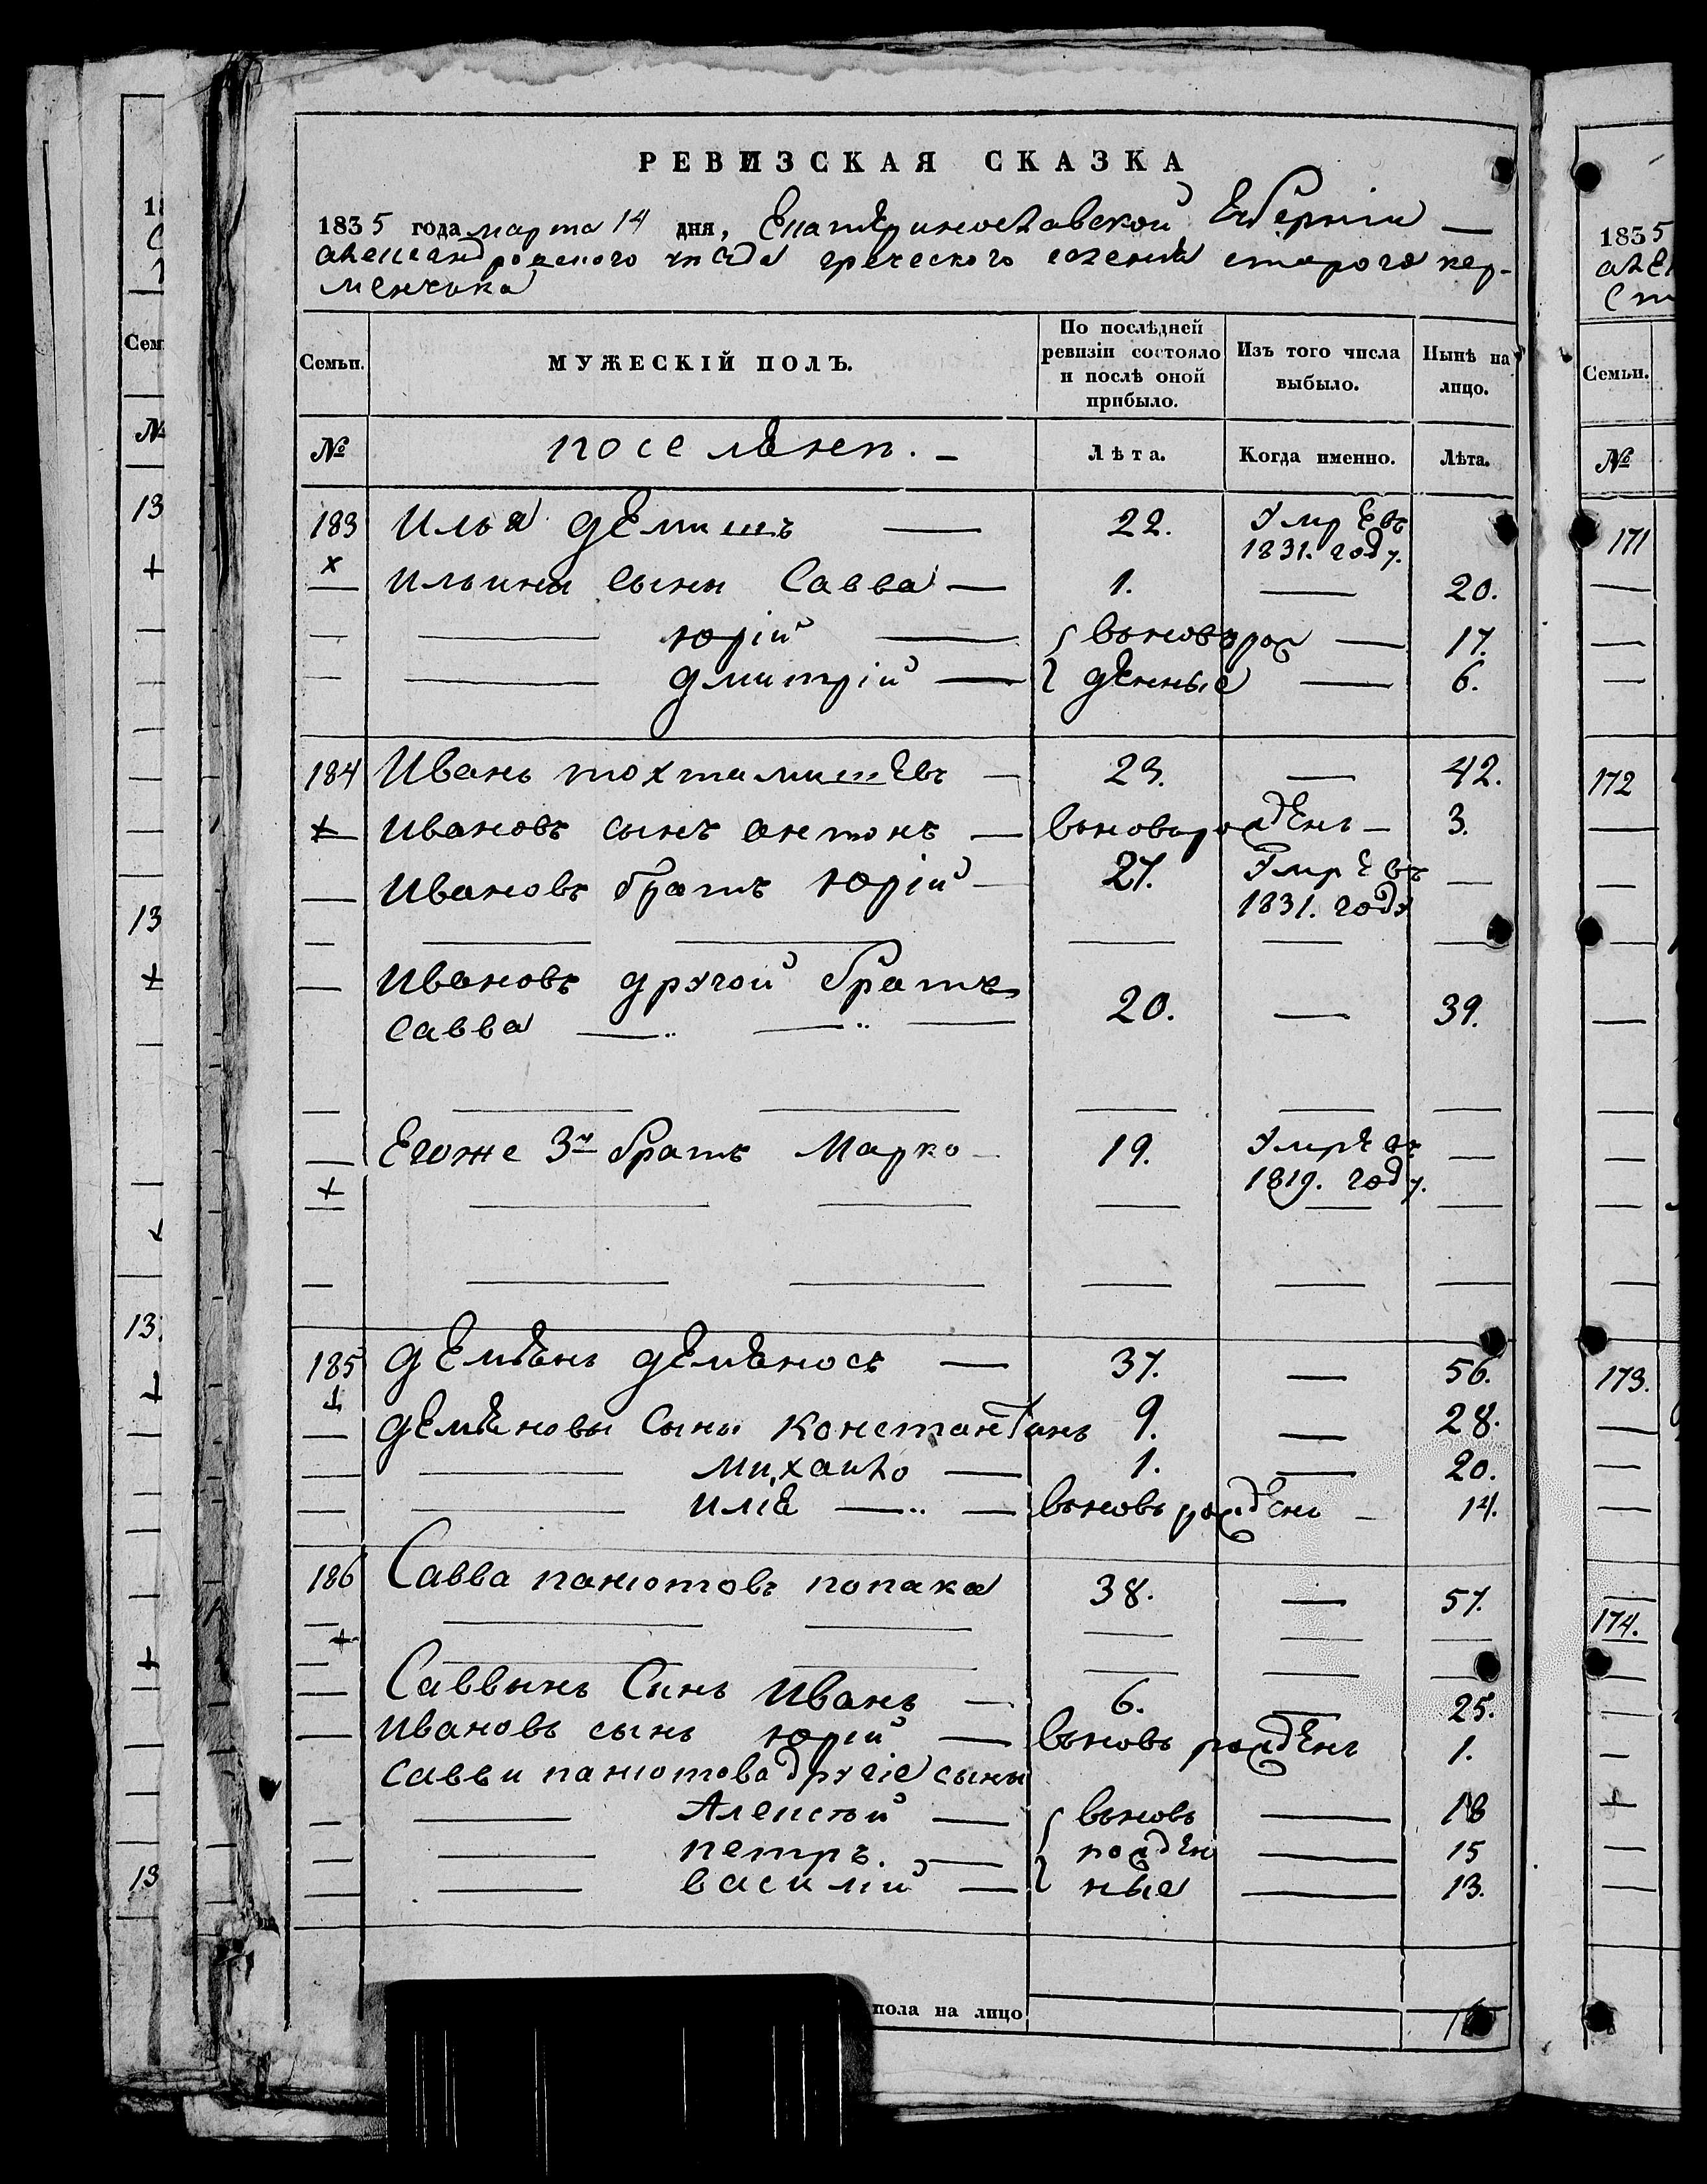 РЕВИЗСКАЯ СКАЗКА
1835 года марта 14 дня, Екатѣринославской Губерніи —
александровского уѣзда греческого селенія старого кер-
менчика
Семьи. МУЖЕСКІЙ ПОЛЪ. По послѣдней ревизіи состояло и послѣ оной прибыло. Изъ того числа выбыло. Нынѣ на лицо.
№ поселѣнеп. Лѣта. Когда именно. Лѣта.
183 Илья демишъ — 22. Умрѣ въ 1831. году.
Ильини сыни Савва — 1. — 20.
юрій — вьновь рож — 17.
дмитрій — денные — 6.
184 Ивань тохтамишевъ — 23. — 42.
Ивановъ сынъ антонъ — вьновь рождень — 3.
Ивановъ братъ юрій — 27. Умрѣ въ 1831. году —
Ивановъ другой братъ
Савва — 20. — 39.
Егоже 3й братъ Марко — 19. Умрѣ въ 1819. году. —
185 демѣнь демѣносъ — 37. — 56.
демѣновы Сыны Константинь 9. — 28.
михаило — 1. — 20.
иліѣ — вьновь рождень — 14.
186 Савва панютовъ попака 38. — 57.
Саввынь Сынь Ивань — 6. — 25.
Ивановь сынь юрій — вьновь рождень 1.
Савви панютова другіе сыны
Алексѣй — вьновь — 18
петръ. — рожден — 15
василій — ные — 13.
пола на лицо
1835
Семьи.
№
171
172
173.
174.
Сем
№
13
13
13
13